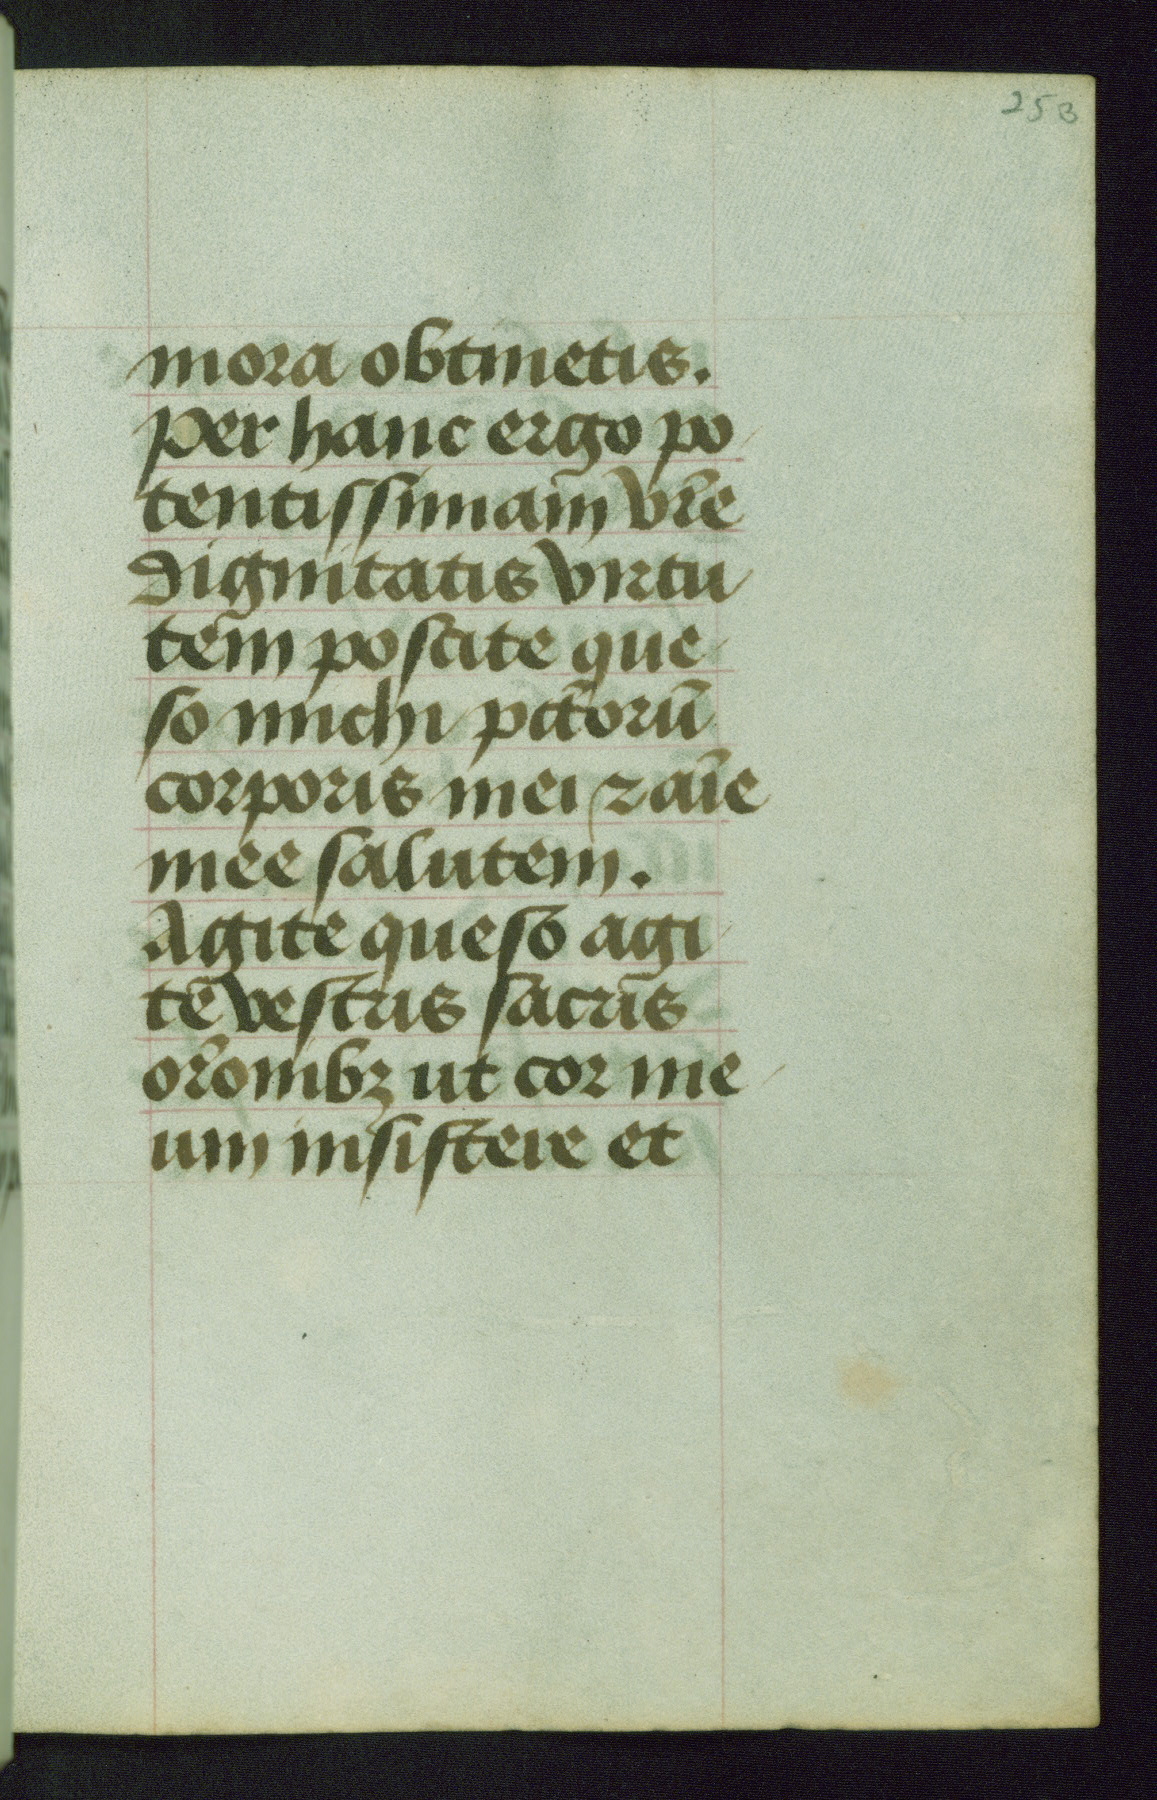 253
mora obtinetis.
Per hanc ergo po
tentissimam vr̄e
dignitatis virtu
tem poscite que
so michi pctōrū
corporis mei ⁊ aīe
mee salutem.
Agite queso agi
te vestris sacris
or̄onibꝫ ut cor me
um insistere et